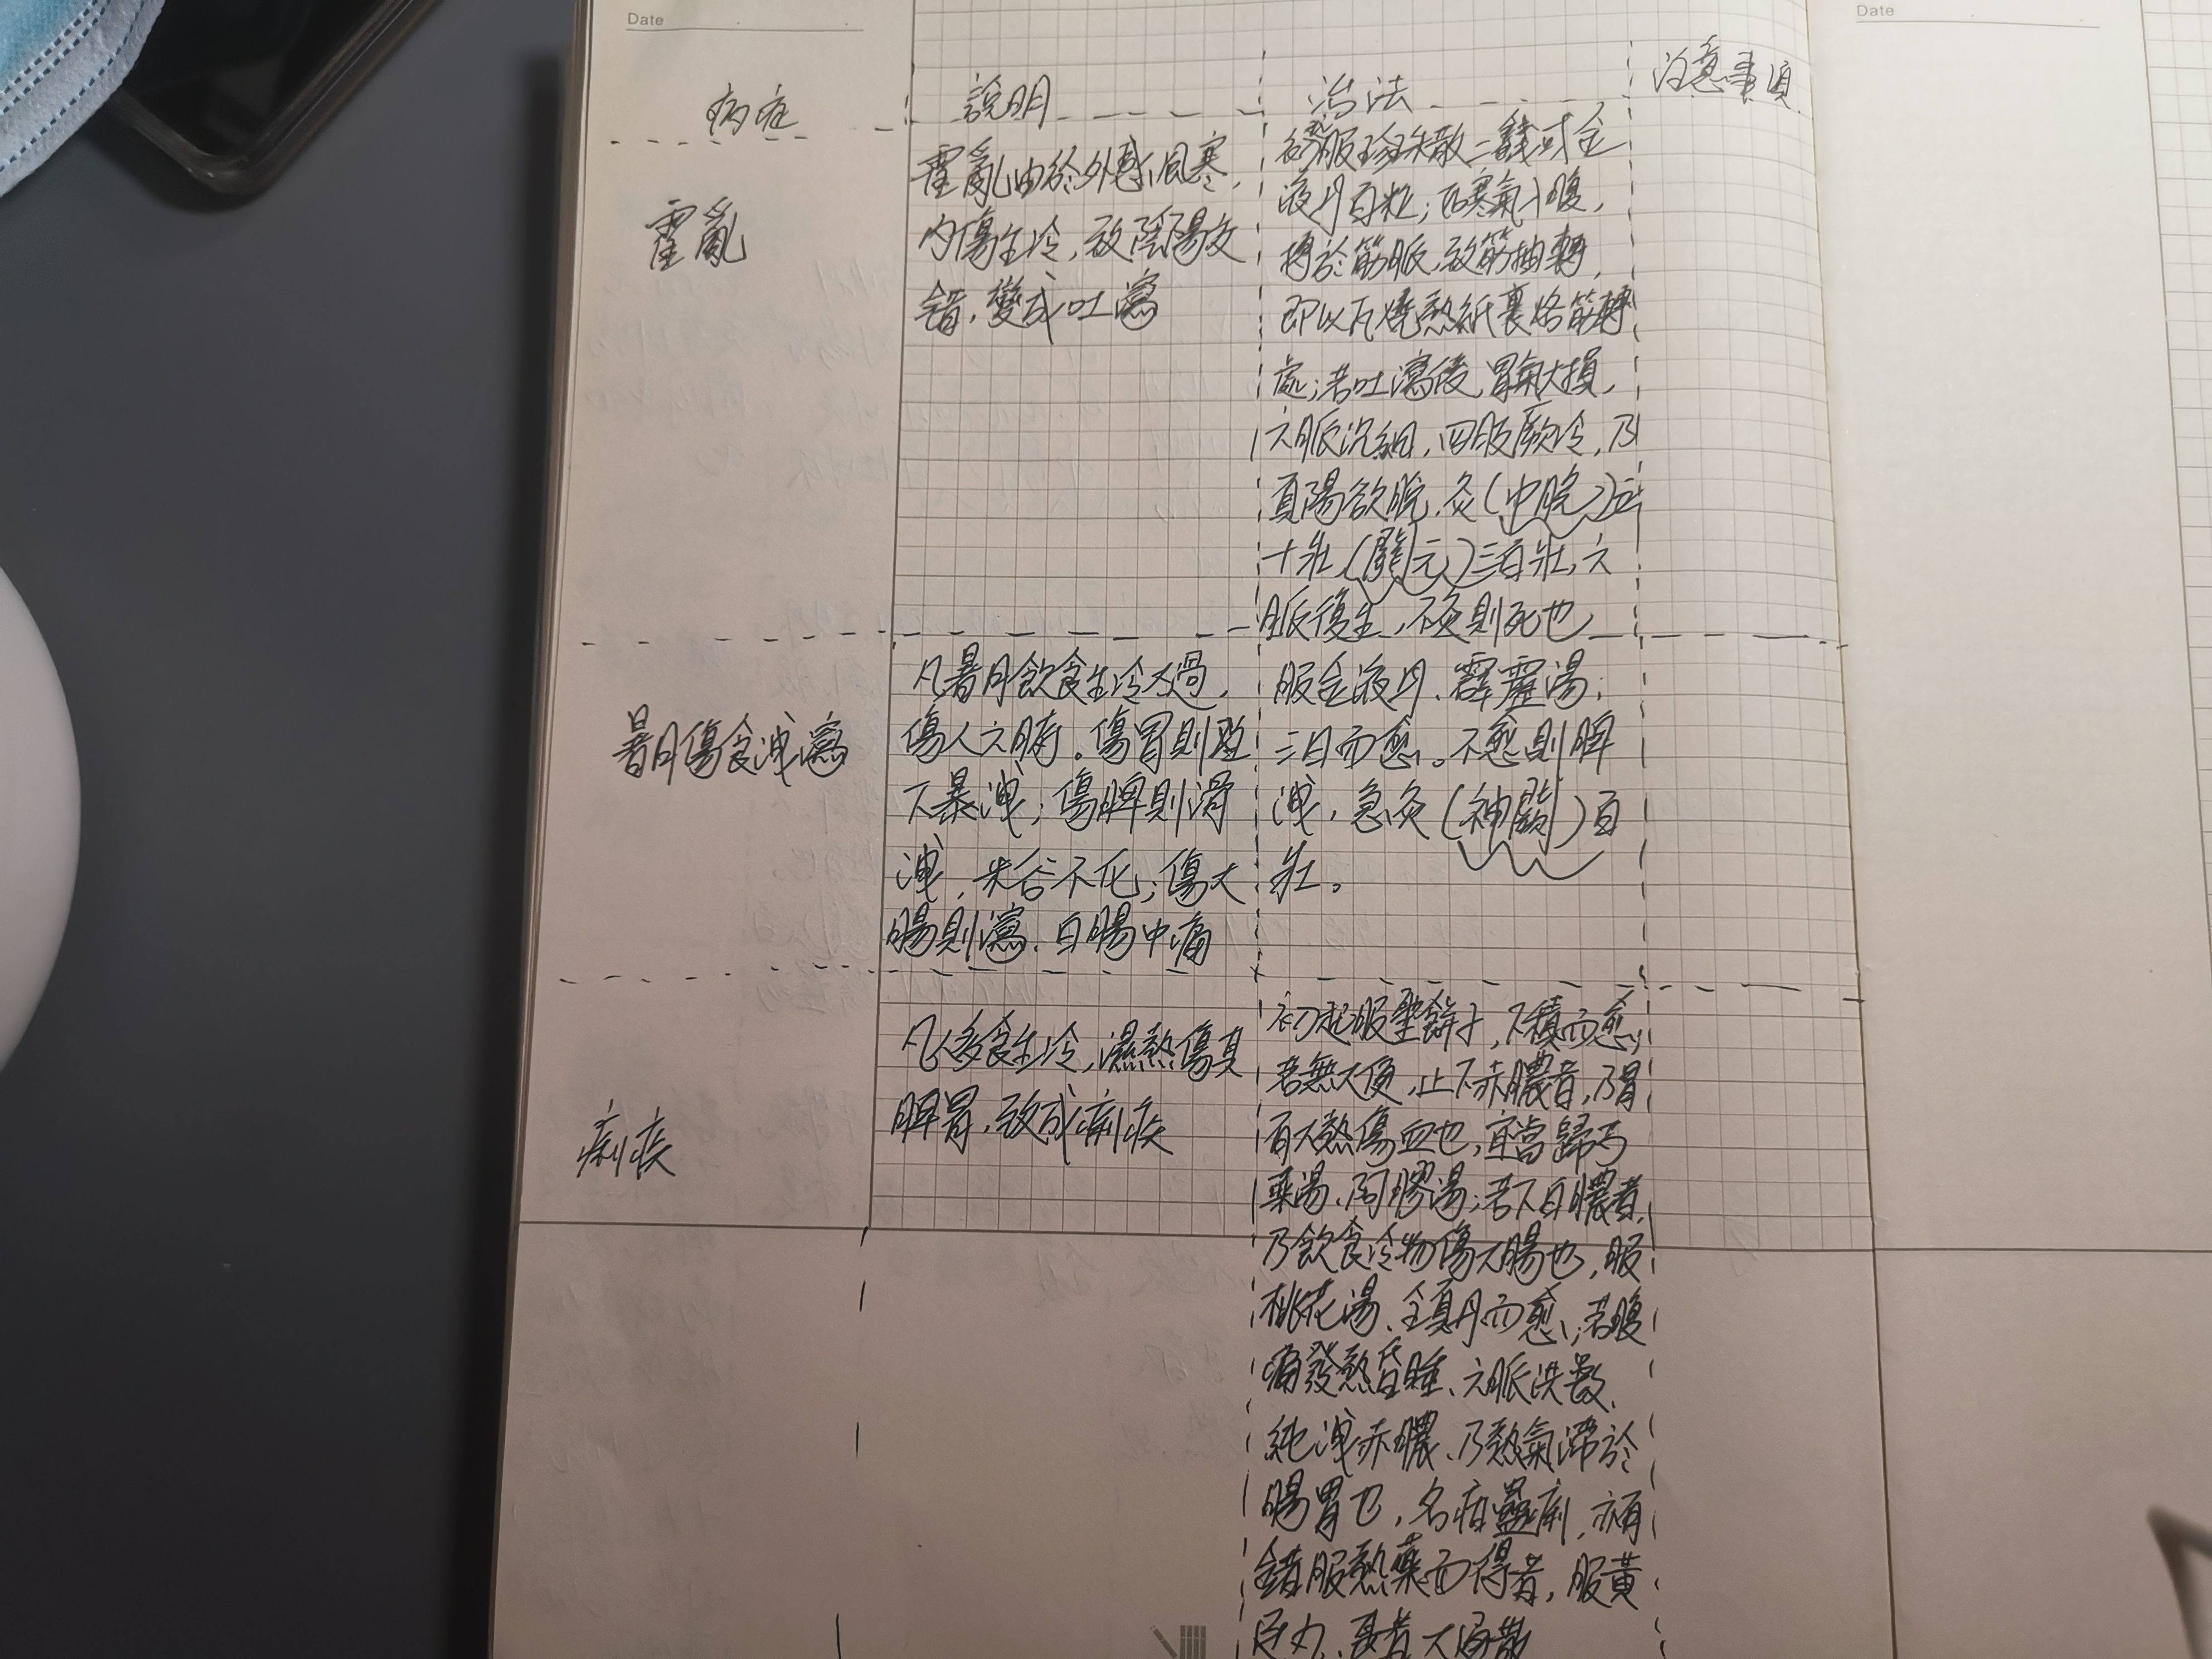 Date
Date
病症
說明
治法
注意事項
霍亂
霍亂由於外感風寒,
內傷生冷,致陰陽交
錯,變成吐瀉
初服珍珠散二錢或金
液丹百粒;因寒氣入腹,
搏於筋脈,致筋抽轉,
即以瓦燒熱紙裹烙筋轉
處;若吐瀉後,胃氣大損,
六脈沉細,四肢厥冷,乃
真陽欲脫,灸(中脘)五
十壯,(關元)三百壯,六
脈復生,不灸則死也
暑月傷食洩瀉
凡暑月飲食生冷太過,
傷人六腑。傷胃則
下暴洩;傷脾則滑
洩,米谷不化;傷大
腸則瀉、白腸中痛
服金液丹、霹靂湯,
三日而愈。不愈則脾
洩,急灸(神闕)百
壯。
痢疾
凡人多食生冷,濕熱傷其
脾胃,致成痢疾
初起服聖餅子,下積而愈,
若無大便,止下赤膿者,乃胃
有大熱傷血也,宜當歸芍
藥湯、阿膠湯;若下白膿者,
乃飲食冷物傷大腸也,服
桃花湯、全真丹而愈;若腹
痛發熱昏睡、六脈洪數、
純洩赤膿、乃熱氣滯於
腸胃也,名疳蠱痢,亦有
錯服熱藥而得者,服黃
連丸、甚者大通散